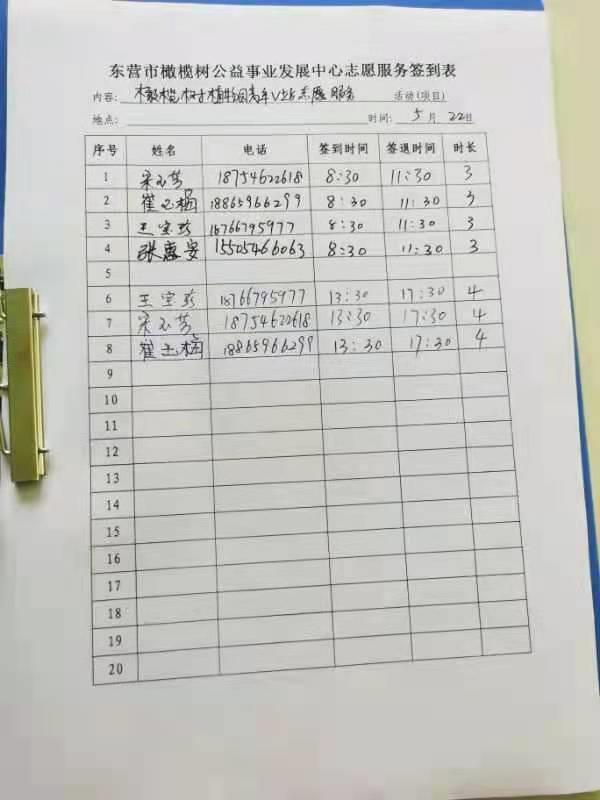 东营市橄榄树公益事业发展中心志愿服务签到表
内容: 橄榄树植物园嘉年V站志愿服务 活动(项目)
地点: 时间: 5月22日
序号 姓名 电话 签到时间 签退时间 时长
1 宋玉芳 18754622618 8:30 11:30 3
2 崔玉梅 18865966299 8:30 11:30 3
3 王宝珍 18766795977 8:30 11:30 3
4 张惠安 15505466063 8:30 11:30 3
5
6 王宝珍 18766795977 13:30 17:30 4
7 宋玉芳 18754622618 13:30 17:30 4
8 崔玉梅 18865966299 13:30 17:30 4
9
10
11
12
13
14
15
16
17
18
19
20